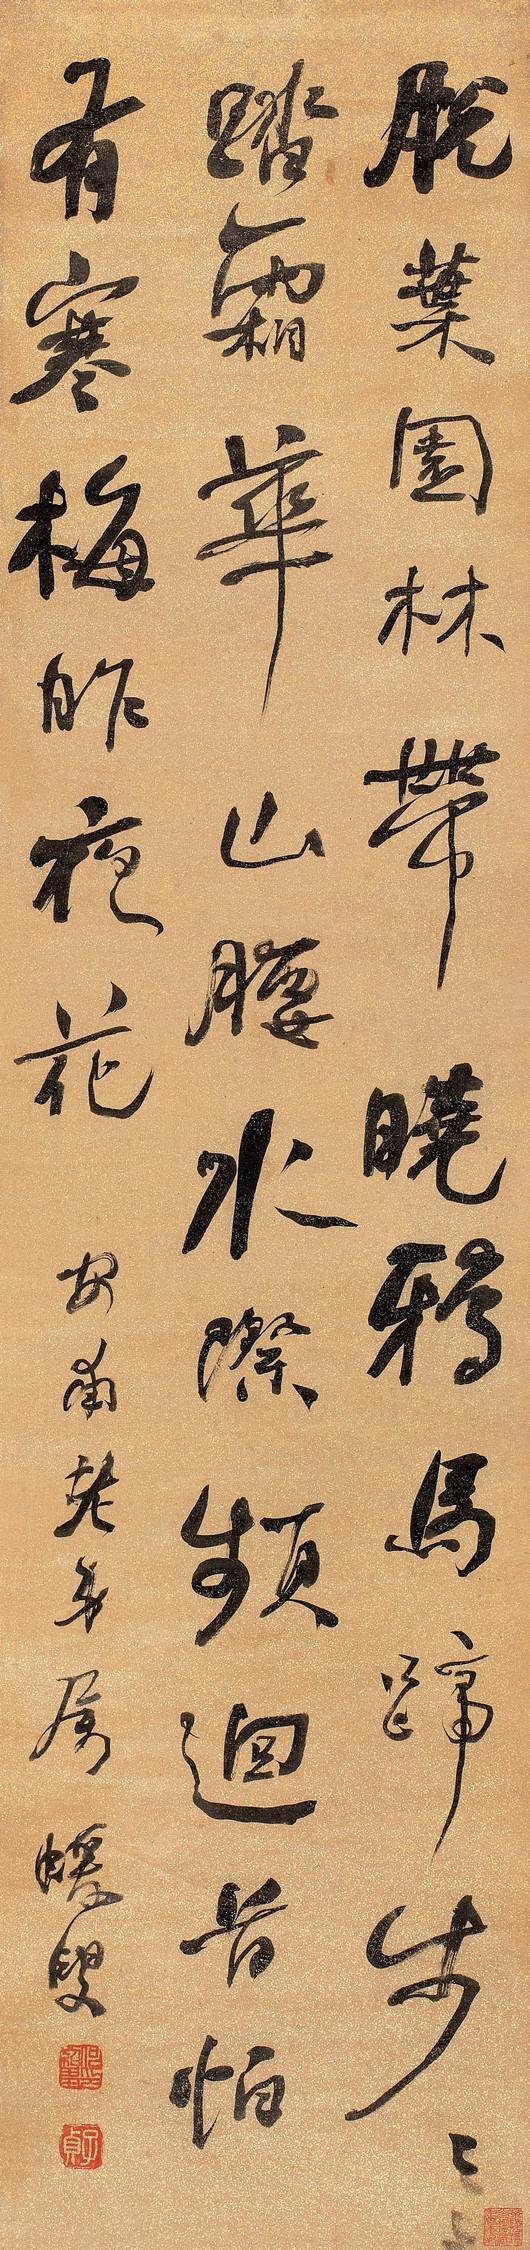 脫葉園林帶曉鴉馬蹄步〻
踏霜華山腰水際頻迴首怕
有寒梅昨夜花 安甫老弟屬 蝯叟
子貞